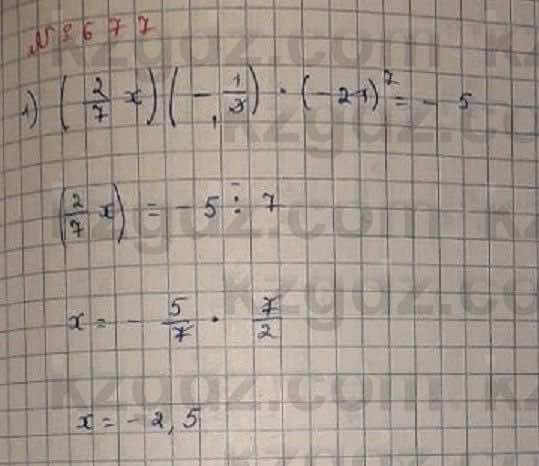 № 8677
1) (2/7 x)(- 1/3) · (-21)^7 = - 5
(2/7 x) = - 5 : 7
x = - 5/7 · 7/2
x = - 2,5
kzgdz.com